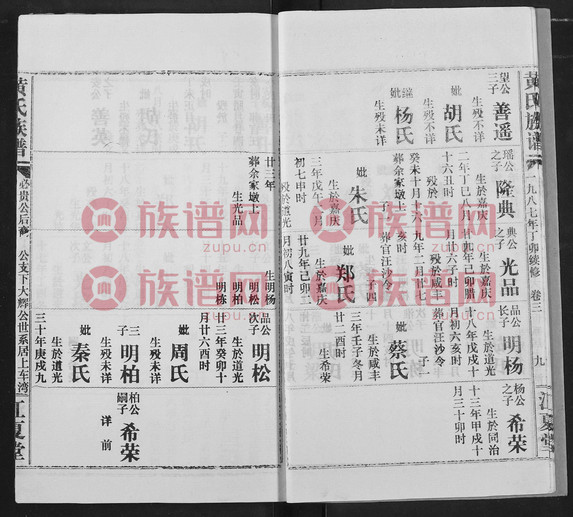 黄氏族谱
一九八七年丁卯续修 卷三
九
江夏堂
望公
三子
善遥
生殁不详
妣
胡氏
生殁不详
继
妣
杨氏
生殁未详
瑶公
之子
隆典
生於嘉庆
二年丁巳八月
十六丑时
殁於
癸未十月十六
亥时
葬余家墩上
妣
朱氏
生於嘉庆
三年戊午八月
初七申时
殁於道光
廿三年
葬余家墩上
典公
之子
光品
生於嘉庆
廿四年己卯腊
月廿六子时
殁於咸丰
九年二月廿
葬官汪沙令
子四
妣
郑氏
生於嘉庆
廿五年己卯二
月初八寅时
生光品
生明杨
明松
明柏
明栋
品公
长子
明杨
生於道光
十八年戊戌十
月初六亥时
葬官汪沙令
子一
妣
蔡氏
生於咸丰
三年壬子冬月
廿二酉时
生希荣
杨公
之子
希荣
生於同治
十三年甲戌十
月三十卯时
品公
次子
明松
生於道光
廿三年癸卯十
月廿六酉时
妣
周氏
生殁未详
三
子
明柏
生殁未详
妣
秦氏
生於道光
三十年庚戌九
柏公
嗣子
希荣
详前
黄氏族谱
必贵公后裔
公支下大辉公世系居上车湾
江夏堂
族谱网
zupu.cn